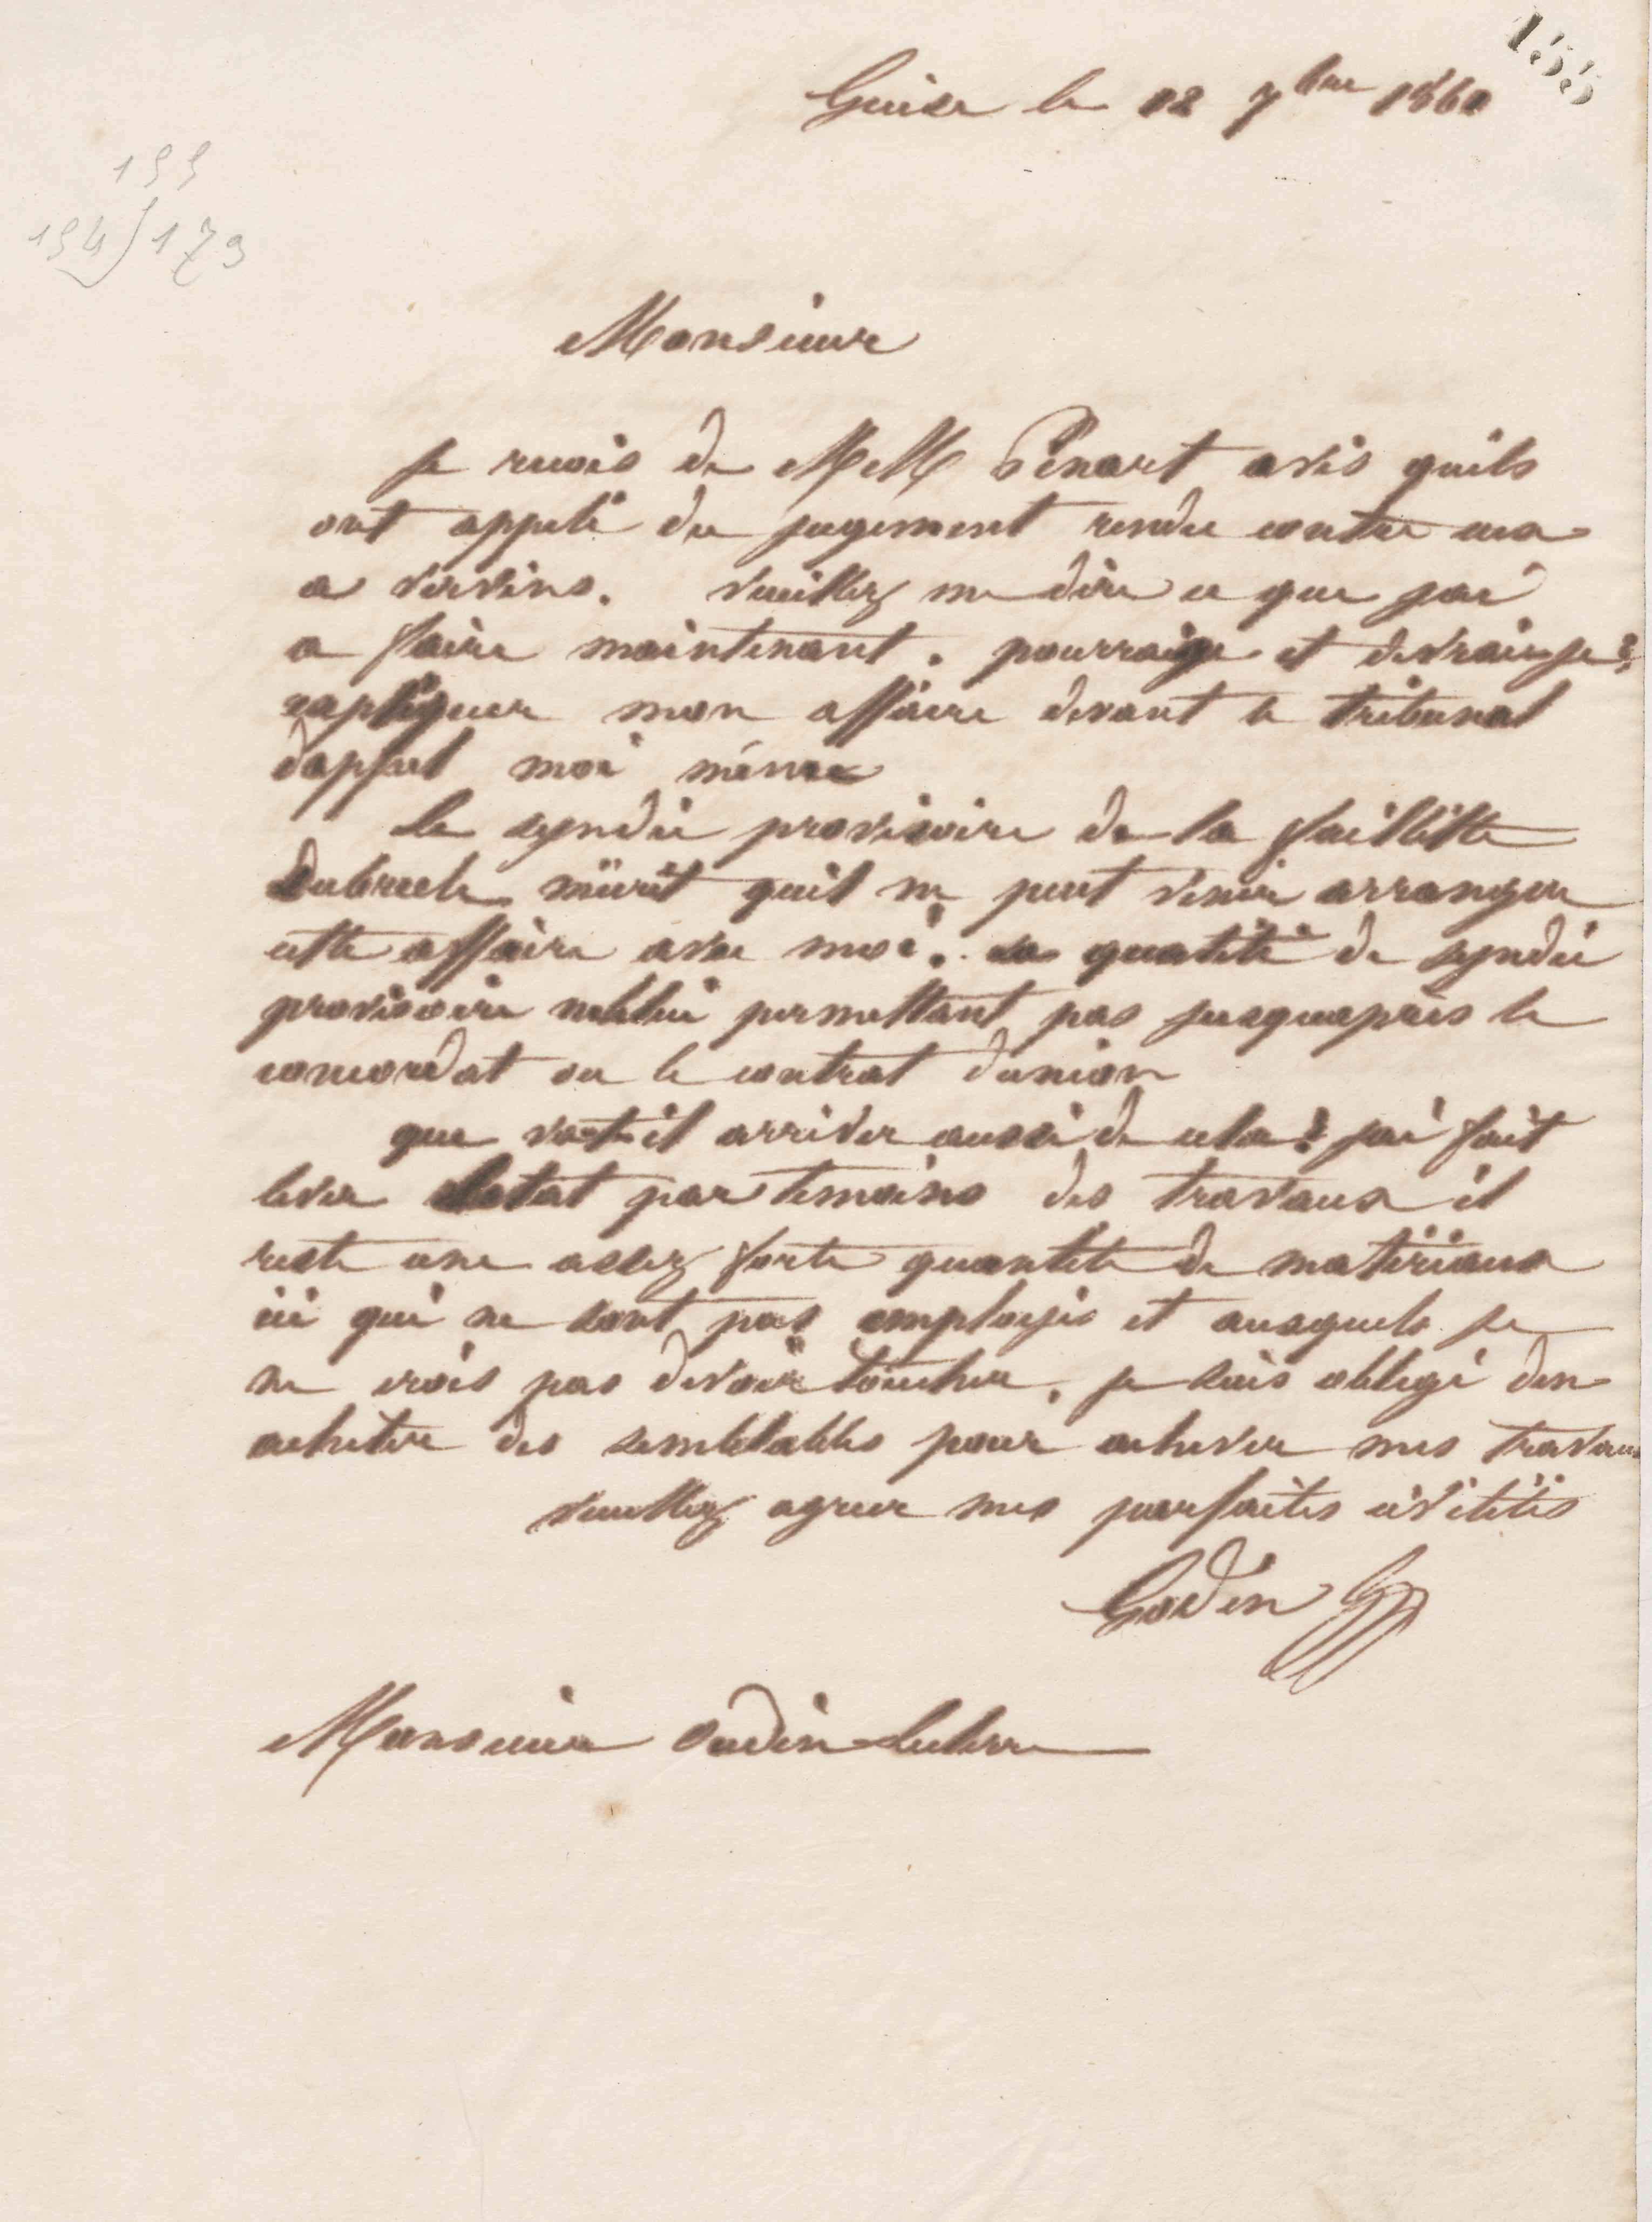 155
Guise le 12 7bre 1860
155
154) 173
Monsieur
je recois de MM Pénart avis quils
ont appelé du jugement rendu contre eux
a vervins. veuillez me dire ce que jai
a faire maintenant. pourraije et devrais-je
expliquer mon affaire devant le tribunal
dappel moi même
le syndic provisoire de la faillitte
mécrit quil ne peut venir arranger
cette affaire avec moi. sa qualité de syndic
provisoire ne lui permettant pas jusquapres le
concordat ou le contrat dunion
que vat-il arriver aussi de cela? jai fait
lever letat par temoins des travaux il
reste une assez forte quantité de matériaux
ici qui ne sont pas employés et auxquels je
ne crois pas devoir toucher. je suis obligé den
acheter des semblables pour achever mes travaux
veuillez agreer mes parfaites civilités
Godin
Monsieur Oudin-Leclere